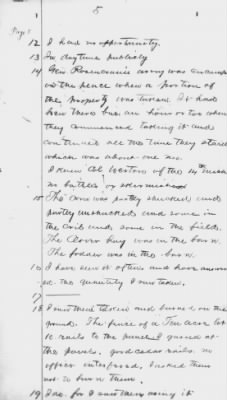 5
Page 1
12 I had no opportunity.
13 In daytime publicly
14 Gen Rosencrans army was
in the place when a portion of
the property was turned It had
been there but an hour or two when
they commenced taking it and
continued all the time they staid
which was about one mo.
I knew Col Weston of the
no battles or skirmishes
15 The corn was partly shucked and
partly unshucked and some in
the crib and some in the field.
The Clover hay was in the barn
The fodder was in the barn.
16 I have seen it often and have answer
ed the quantity I saw taken.
17
18 I saw them take it and burned on the
ground. The fence of a Ten acre lot
10 rails to the pannel I guess at
the panels, good cedar rails no
officer interposed, I asked them
not to burn them.
19 I do. for I saw them using it